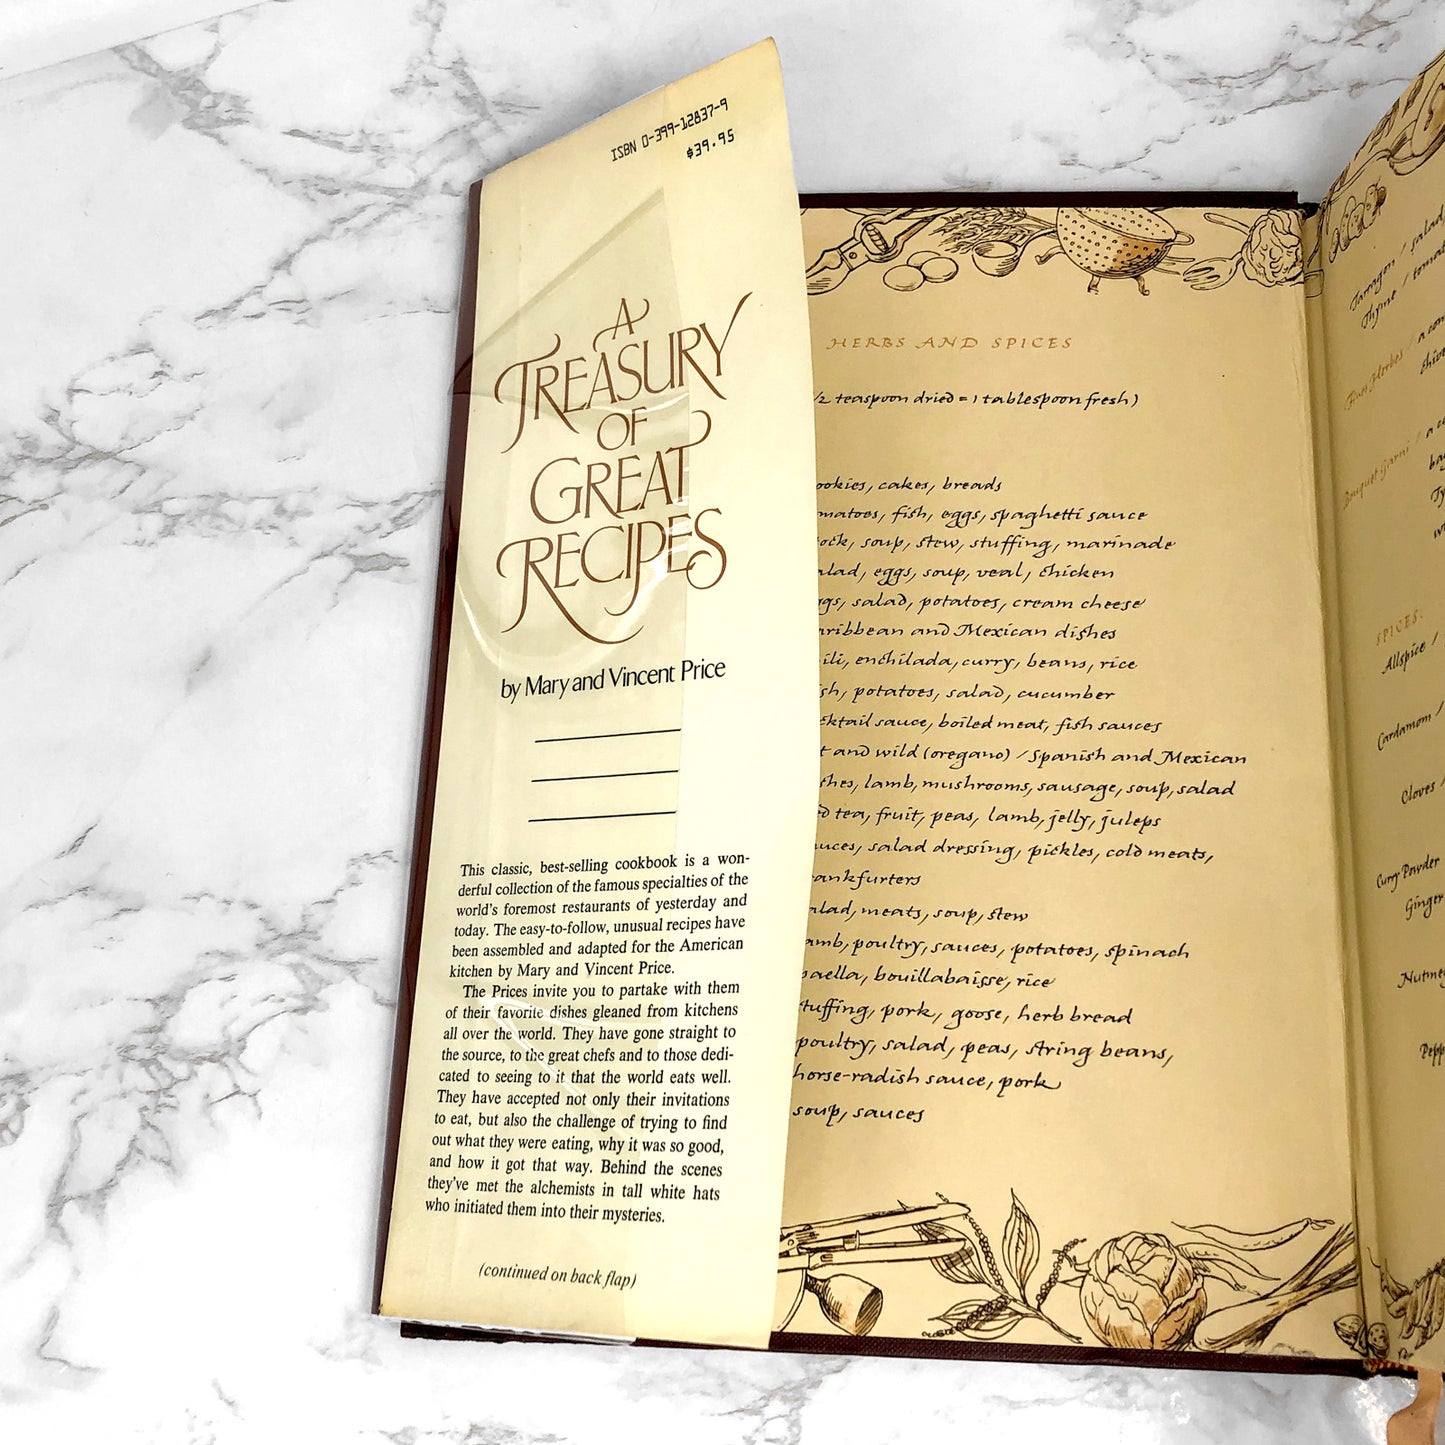 ISBN 0-399-12837-9
$39.95
A
TREASURY
OF
GREAT
RECIPES
by Mary and Vincent Price
This classic, best-selling cookbook is a won-
derful collection of the famous specialties of the
world's foremost restaurants of yesterday and
today. The easy-to-follow, unusual recipes have
been assembled and adapted for the American
kitchen by Mary and Vincent Price.
The Prices invite you to partake with them
of their favorite dishes gleaned from kitchens
all over the world. They have gone straight to
the source, to the great chefs and to those dedi-
cated to seeing to it that the world eats well.
They have accepted not only their invitations
to eat, but also the challenge of trying to find
out what they were eating, why it was so good,
and how it got that way. Behind the scenes
they've met the alchemists in tall white hats
who initiated them into their mysteries.
(continued on back flap)
HERBS AND SPICES
/2 teaspoon dried = 1 tablespoon fresh)
ookies, cakes, breads
matoes, fish, eggs, spaghetti sauce
ock, soup, stew, stuffing, marinade
alad, eggs, soup, veal, chicken
ggs, salad, potatoes, cream cheese
aribbean and Mexican dishes
ili, enchilada, curry, beans, rice
ish, potatoes, salad, cucumber
cktail sauce, boiled meat, fish sauces
t and wild (oregano) / Spanish and Mexican
shes, lamb, mushrooms, sausage, soup, salad
ed tea, fruit, peas, lamb, jelly, juleps
auces, salad dressing, pickles, cold meats,
rankfurters
alad, meats, soup, stew
amb, poultry, sauces, potatoes, spinach
paella, bouillabaisse, rice
tuffing, pork, goose, herb bread
poultry, salad, peas, string beans,
horse-radish sauce, pork
soup, sauces
Tarragon / salad
Thyme / tomat
Fines Herbes / a com
chive
Bouquet Garni / a co
ba
Ty
w
SPICES:
Allspice /
Cardamom /
Cloves /
Curry Powder
Ginger
Nutmeg
Pepp